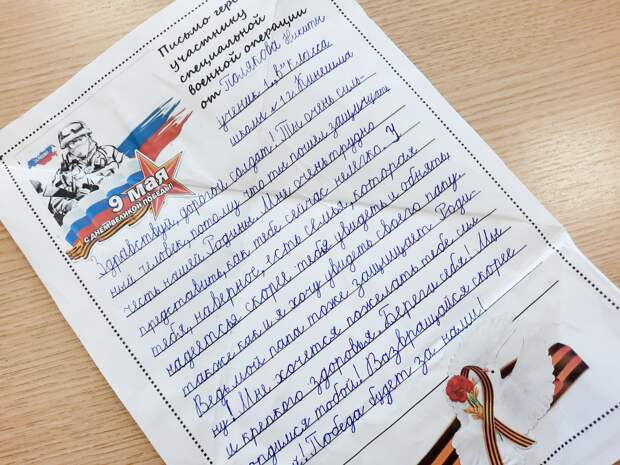 Письмо герою
участнику
специальной
военной операции
от Полякова Никиты
ученик 1 "В" класса
школы №1 г. Кинешма
9 мая
С ДНЕМ ВЕЛИКОЙ ПОБЕДЫ!
Здравствуй, дорогой солдат! Ты очень силь-
ный человек, потому что ты пошёл защищать
честь нашей Родины. Мне очень трудно
представить, как тебе сейчас нелегко. У
тебя, наверное, есть семья, которая
надеется скорее тебя увидеть и обнять,
также как и я хочу увидеть своего папу.
Ведь мой папа тоже защищает Роди-
ну! Мне хочется пожелать тебе сил
и крепкого здоровья. Береги себя! Мы
гордимся тобой! Возвращайся скорее
Победа будет за нами!